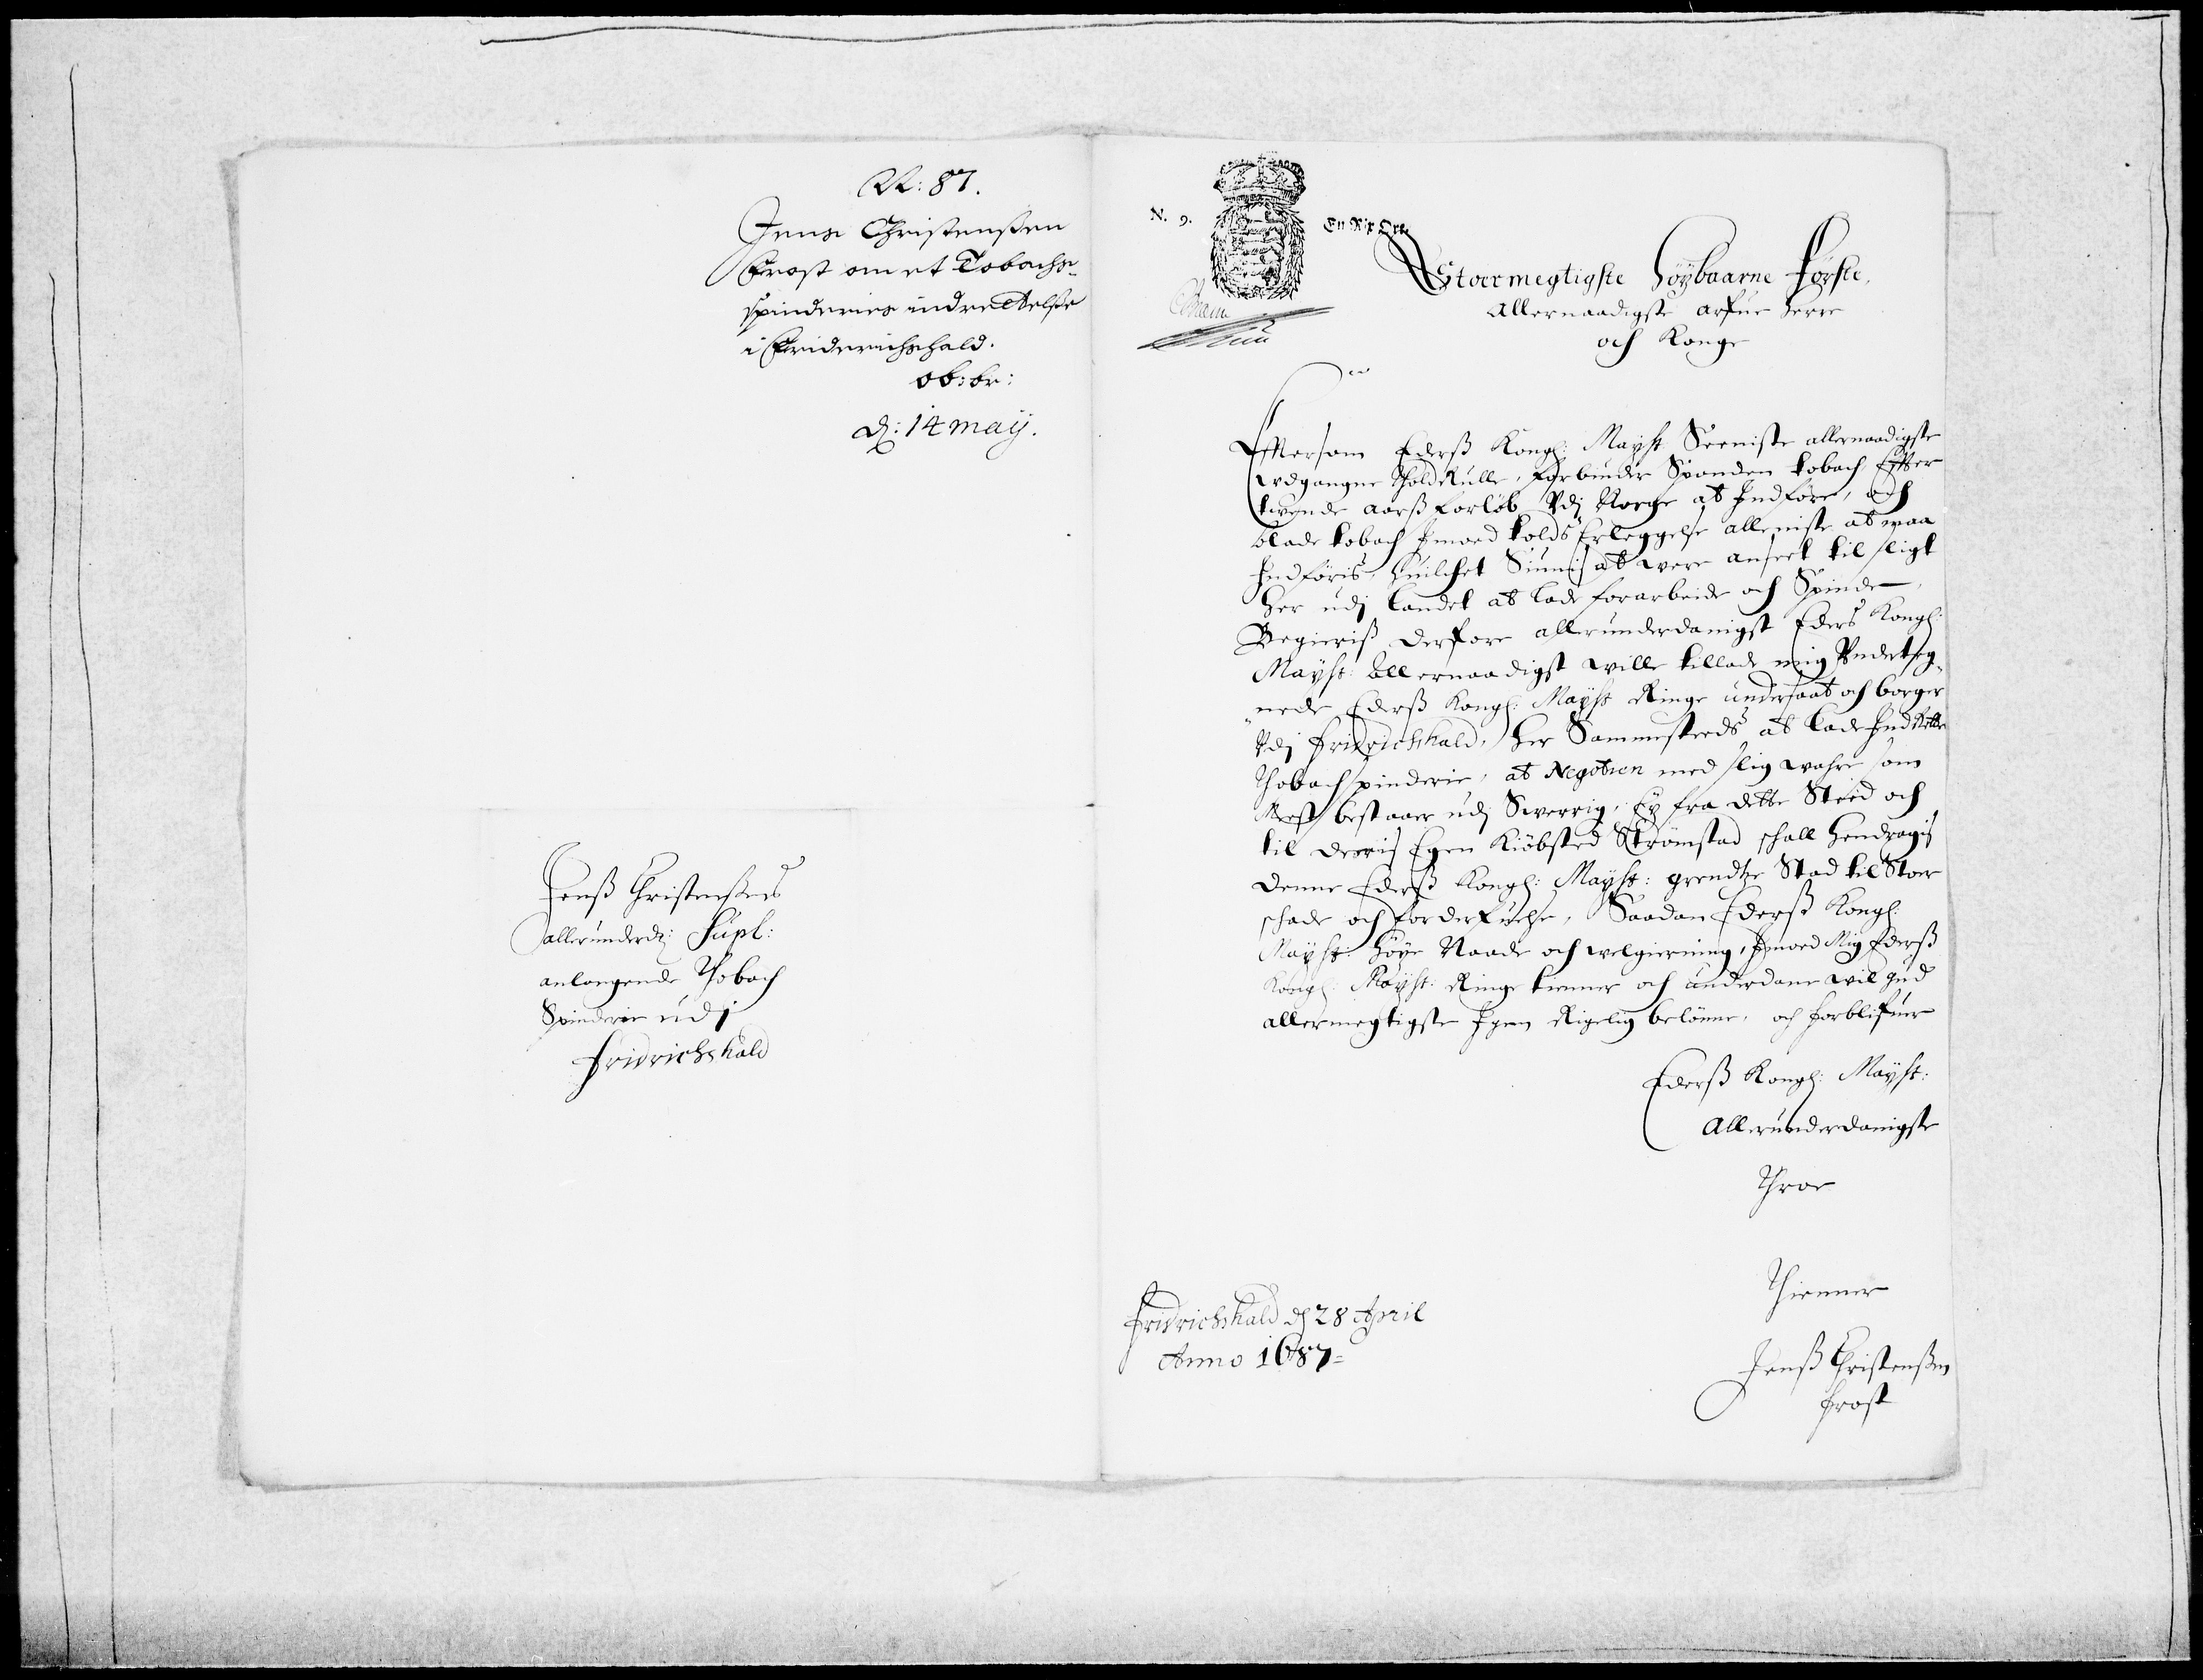 N: 87.
Jens Christenßen
Frost om et Tobachs-
spinderies indrettelse
i Friderichshald.
ob: br:
d: 14 maij.
Jenß Christenßens
allerunderd: Supl:
anlangende Thobach
Spinderie udj
Fridrichshald
N. 9. En Rix Ort.
Stoermegtigste Höybaarne Förste,
Allernaadigste arfue Herre
och Konge
Eftersom Ederß Kongl: Mayst Seeniste allernaadigste
udgangne Toldrulle, forbiuder Spunden tobach Effter
tvende aarß forløb Udj Norge at Indføre, och
blade tobach Imoed tolds Erleggelse alleniste at maa
Indføris, huilchet Siunis at were anseet til sligt
her udj landet at lade forarbeide och Spinde,
Begieriß derfore allerunderdanigst Eders Kongl:
Mayst: allernaadigst wille tillade mig Underteg-
nede Ederß Kongl: Mayst Ringe undersaat och borger
Udj Fridrichshald, her Sammesteeds at lade Indrette
Thobachspinderie, at Negotien med slig wahre som
Mest bestaaer udj Swerrig, Ey fra dette Steed och
til deeris Egen Kiöbsted Strømstad schall hendragis
denne Ederß Kongl: Mayst: grendtze Stad til Stoer
schade och forderfuelse, Saadan Ederß Kongl:
Mayst: höye Naade och welgierning, Imoed Mig Ederß
Kongl: Mayst: Ringe tienner och underdane wil gud
allermegtigste Igen Rigelig belönne, och forblifuer
Ederß Kongl: Mayst:
Allerunderdanigste
Throe
Thienner
Jenß Christenßen
frost
Fridrichshald d 28 April
Anno 1687=